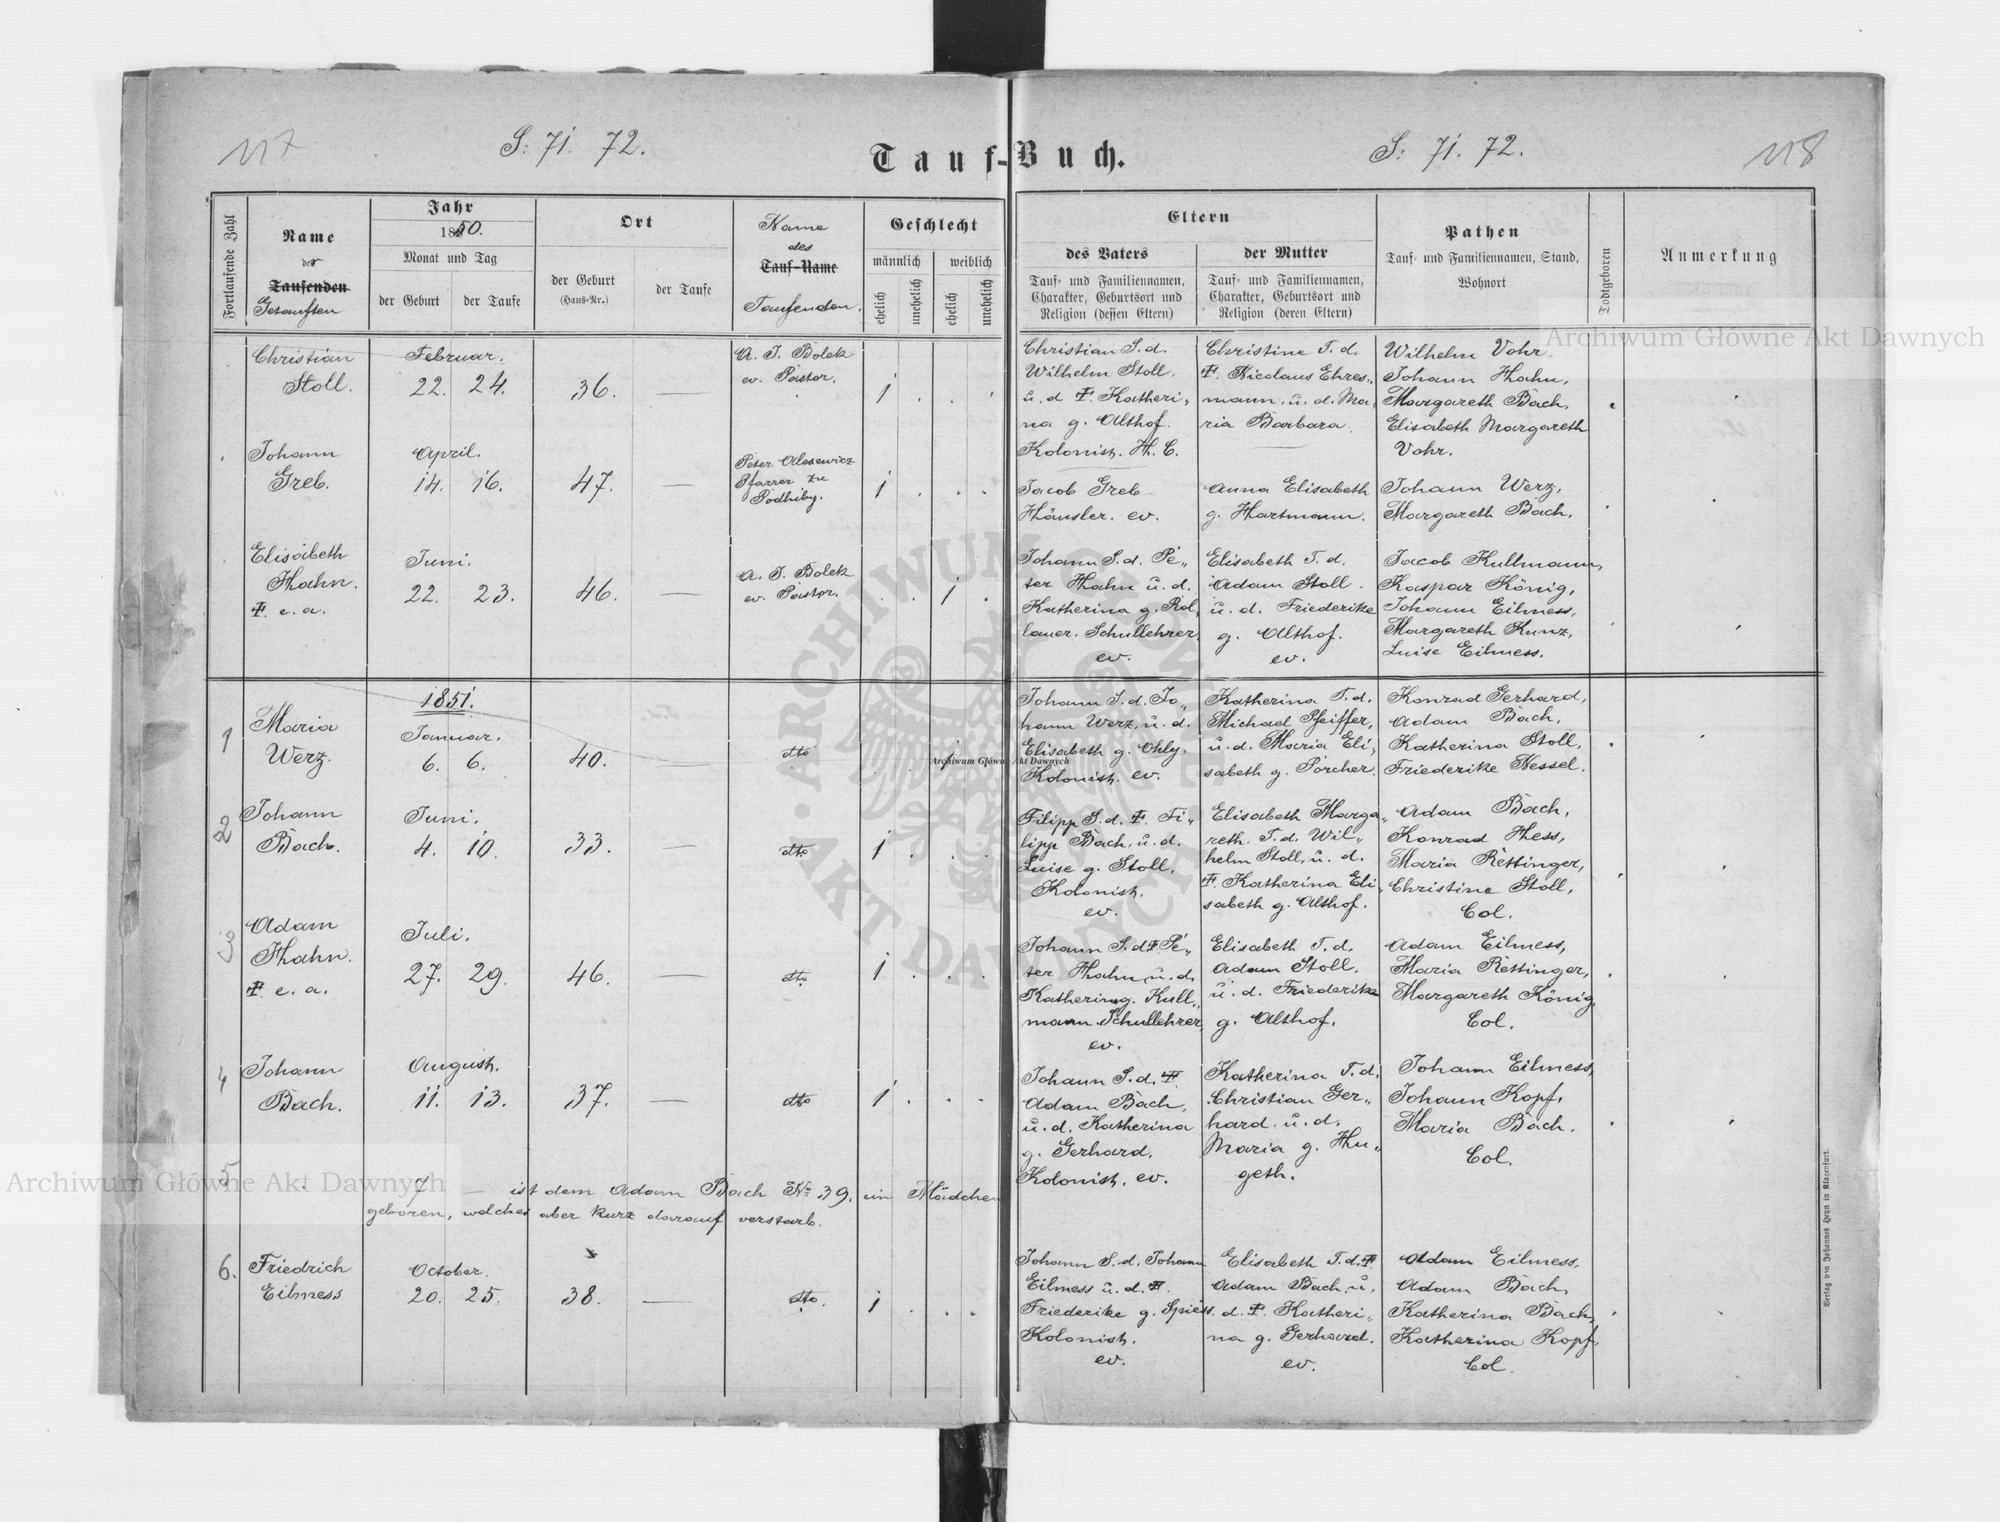 117
S: 71. 72.
Tauf-Buch.
S: 71. 72.
118
Fortlaufende Zahl
Name
der
Taufenden
Getauften
Jahr
1850.
Monat und Tag
der Geburt
der Taufe
Ort
der Geburt
(Haus-Nr.)
der Taufe
Name
des
Tauf-Name
Taufenden.
Geschlecht
männlich
weiblich
ehelich
unehelich
ehelich
unehelich
Eltern
des Vaters
Tauf- und Familiennamen,
Charakter, Geburtsort und
Religion (dessen Eltern)
der Mutter
Tauf- und Familiennamen,
Charakter, Geburtsort und
Religion (deren Eltern)
Pathen
Tauf- und Familiennamen, Stand,
Wohnort
Todtgeboren
Anmerkung
Christian
Stoll.
Februar.
22. 24.
36.
—
A. J. Bolek
ev. Pastor.
1
Christian S. d.
Wilhelm Stoll.
u. d. Ŧ. Katheri„
na g. Althof.
Kolonist. H. C.
Christine T. d.
Ŧ. Nicolaus Ehres„
mann, u. d. Ma„
ria Barbara.
Wilhelm Vohr,
Johann Hahn,
Margareth Bach,
Elisabeth Margareth
Vohr.
Johann
Greb.
April.
14. 16.
47.
—
Peter Alosewicz
Pfarrer zu
Podhiby.
1
Jacob Greb
Häusler. ev.
Anna Elisabeth
g. Hartmann.
Johann Werz,
Margareth Bach.
Elisabeth
Hahn.
Ŧ. e. a.
Juni.
22. 23.
46.
—
A. J. Bolek
ev. Pastor.
1
Johann S. d. Pe„
ter Hahn u. d.
Katherina g. Rol„
lauer. Schullehrer,
ev.
Elisabeth T. d.
Adam Stoll.
u. d. Friederike
g. Althof.
ev.
Jacob Kullmann,
Kaspar König,
Johann Eilmess,
Margareth Kunz,
Luise Eilmess.
1851.
1
Maria
Werz.
Januar.
6. 6.
40.
—
dto
Johann S. d. Jo„
hann Werz, u. d.
Elisabeth g. Ohly.
Kolonist. ev.
Katherina T. d.
Michael Pfeiffer,
u. d. Maria Eli„
sabeth g. Porcher.
Konrad Gerhard,
Adam Bach,
Katherina Stoll,
Friederike Hessel.
2
Johann
Bach.
Juni.
4. 10.
33.
—
dto
1
Filipp S. d. Ŧ. Fi„
lipp Bach, u. d.
Luise g. Stoll.
Kolonist.
ev.
Elisabeth Marga„
reth. T. d. Wil„
helm Stoll, u. d.
Ŧ. Katherina Eli„
sabeth g. Althof.
Adam Bach,
Konrad Hess,
Maria Rettinger,
Christine Stoll,
Col.
3
Adam
Hahn.
Ŧ. e. a.
Juli.
27. 29.
46.
—
dto
1
Johann S. d. Ŧ Pe„
ter Hahn, u. d.
Katherina g. Kull„
mann. Schullehrer,
ev.
Elisabeth T. d.
Adam Stoll.
u. d. Friederike
g. Althof.
Adam Eilmess,
Maria Rettinger,
Margareth König,
Col.
4
Johann
Bach.
August.
11. 13.
37.
—
dto
1
Johann S. d. Ŧ.
Adam Bach,
u. d. Katherina
g. Gerhard.
Kolonist. ev.
Katherina T. d.
Christian Ger„
hard. u. d.
Maria g. Hu„
geth.
Johann Eilmess,
Johann Kopf,
Maria Bach.
Col.
5
7 — ist dem Adam Bach No 39. ein Mädchen
geboren, welches aber kurz darauf verstarb.
6.
Friedrich
Eilmess
October.
20. 25.
38.
—
dto.
1
Johann S. d. Johann
Eilmess u. d. Ŧ.
Friederike g. Spiess.
Kolonist.
ev.
Elisabeth T. d. Ŧ
Adam Bach, u.
d. Ŧ. Katheri„
na g. Gerhard.
ev.
Adam Eilmess,
Adam Bach,
Katherina Bach,
Katherina Kopf,
Col.
Verlag von Johannes Heyn in Klagenfurt.
Archiwum Główne Akt Dawnych
Archiwum Główne Akt Dawnych
Archiwum Główne Akt Dawnych
ARCHIWUM GŁÓWNE AKT DAWNYCH